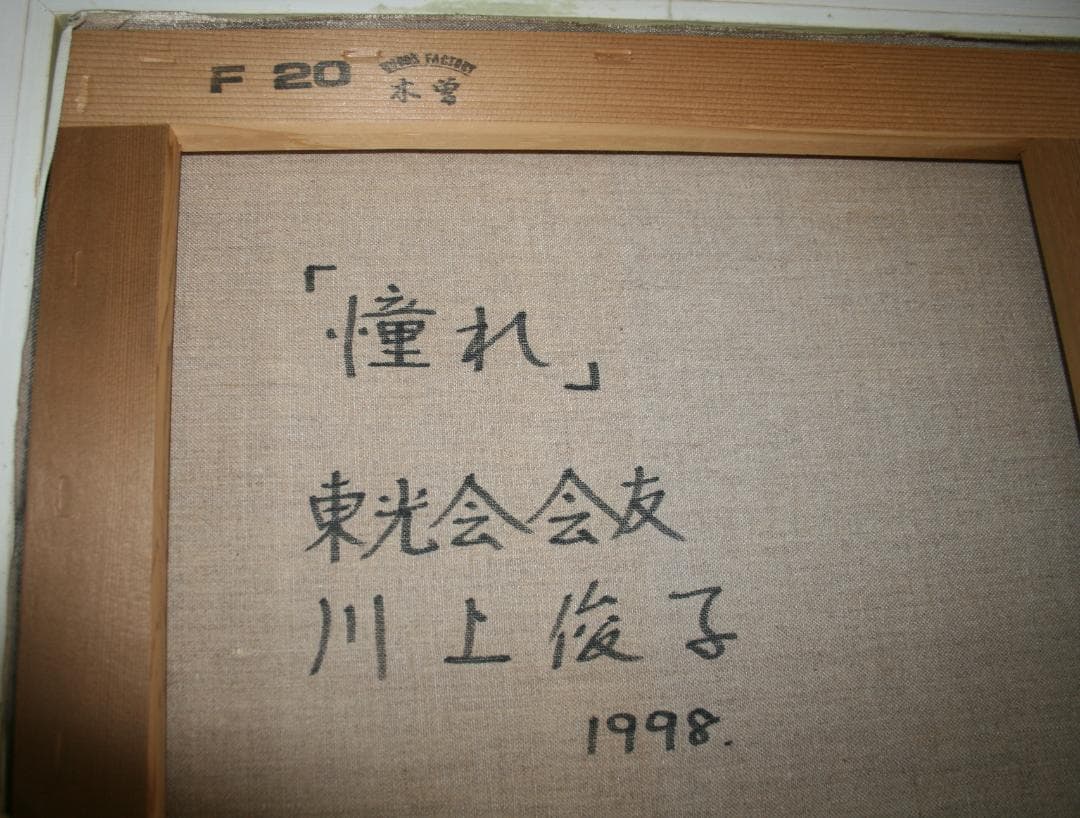 F 20
木曽
「憧れ」
東光会会友
川上俊子
1998.